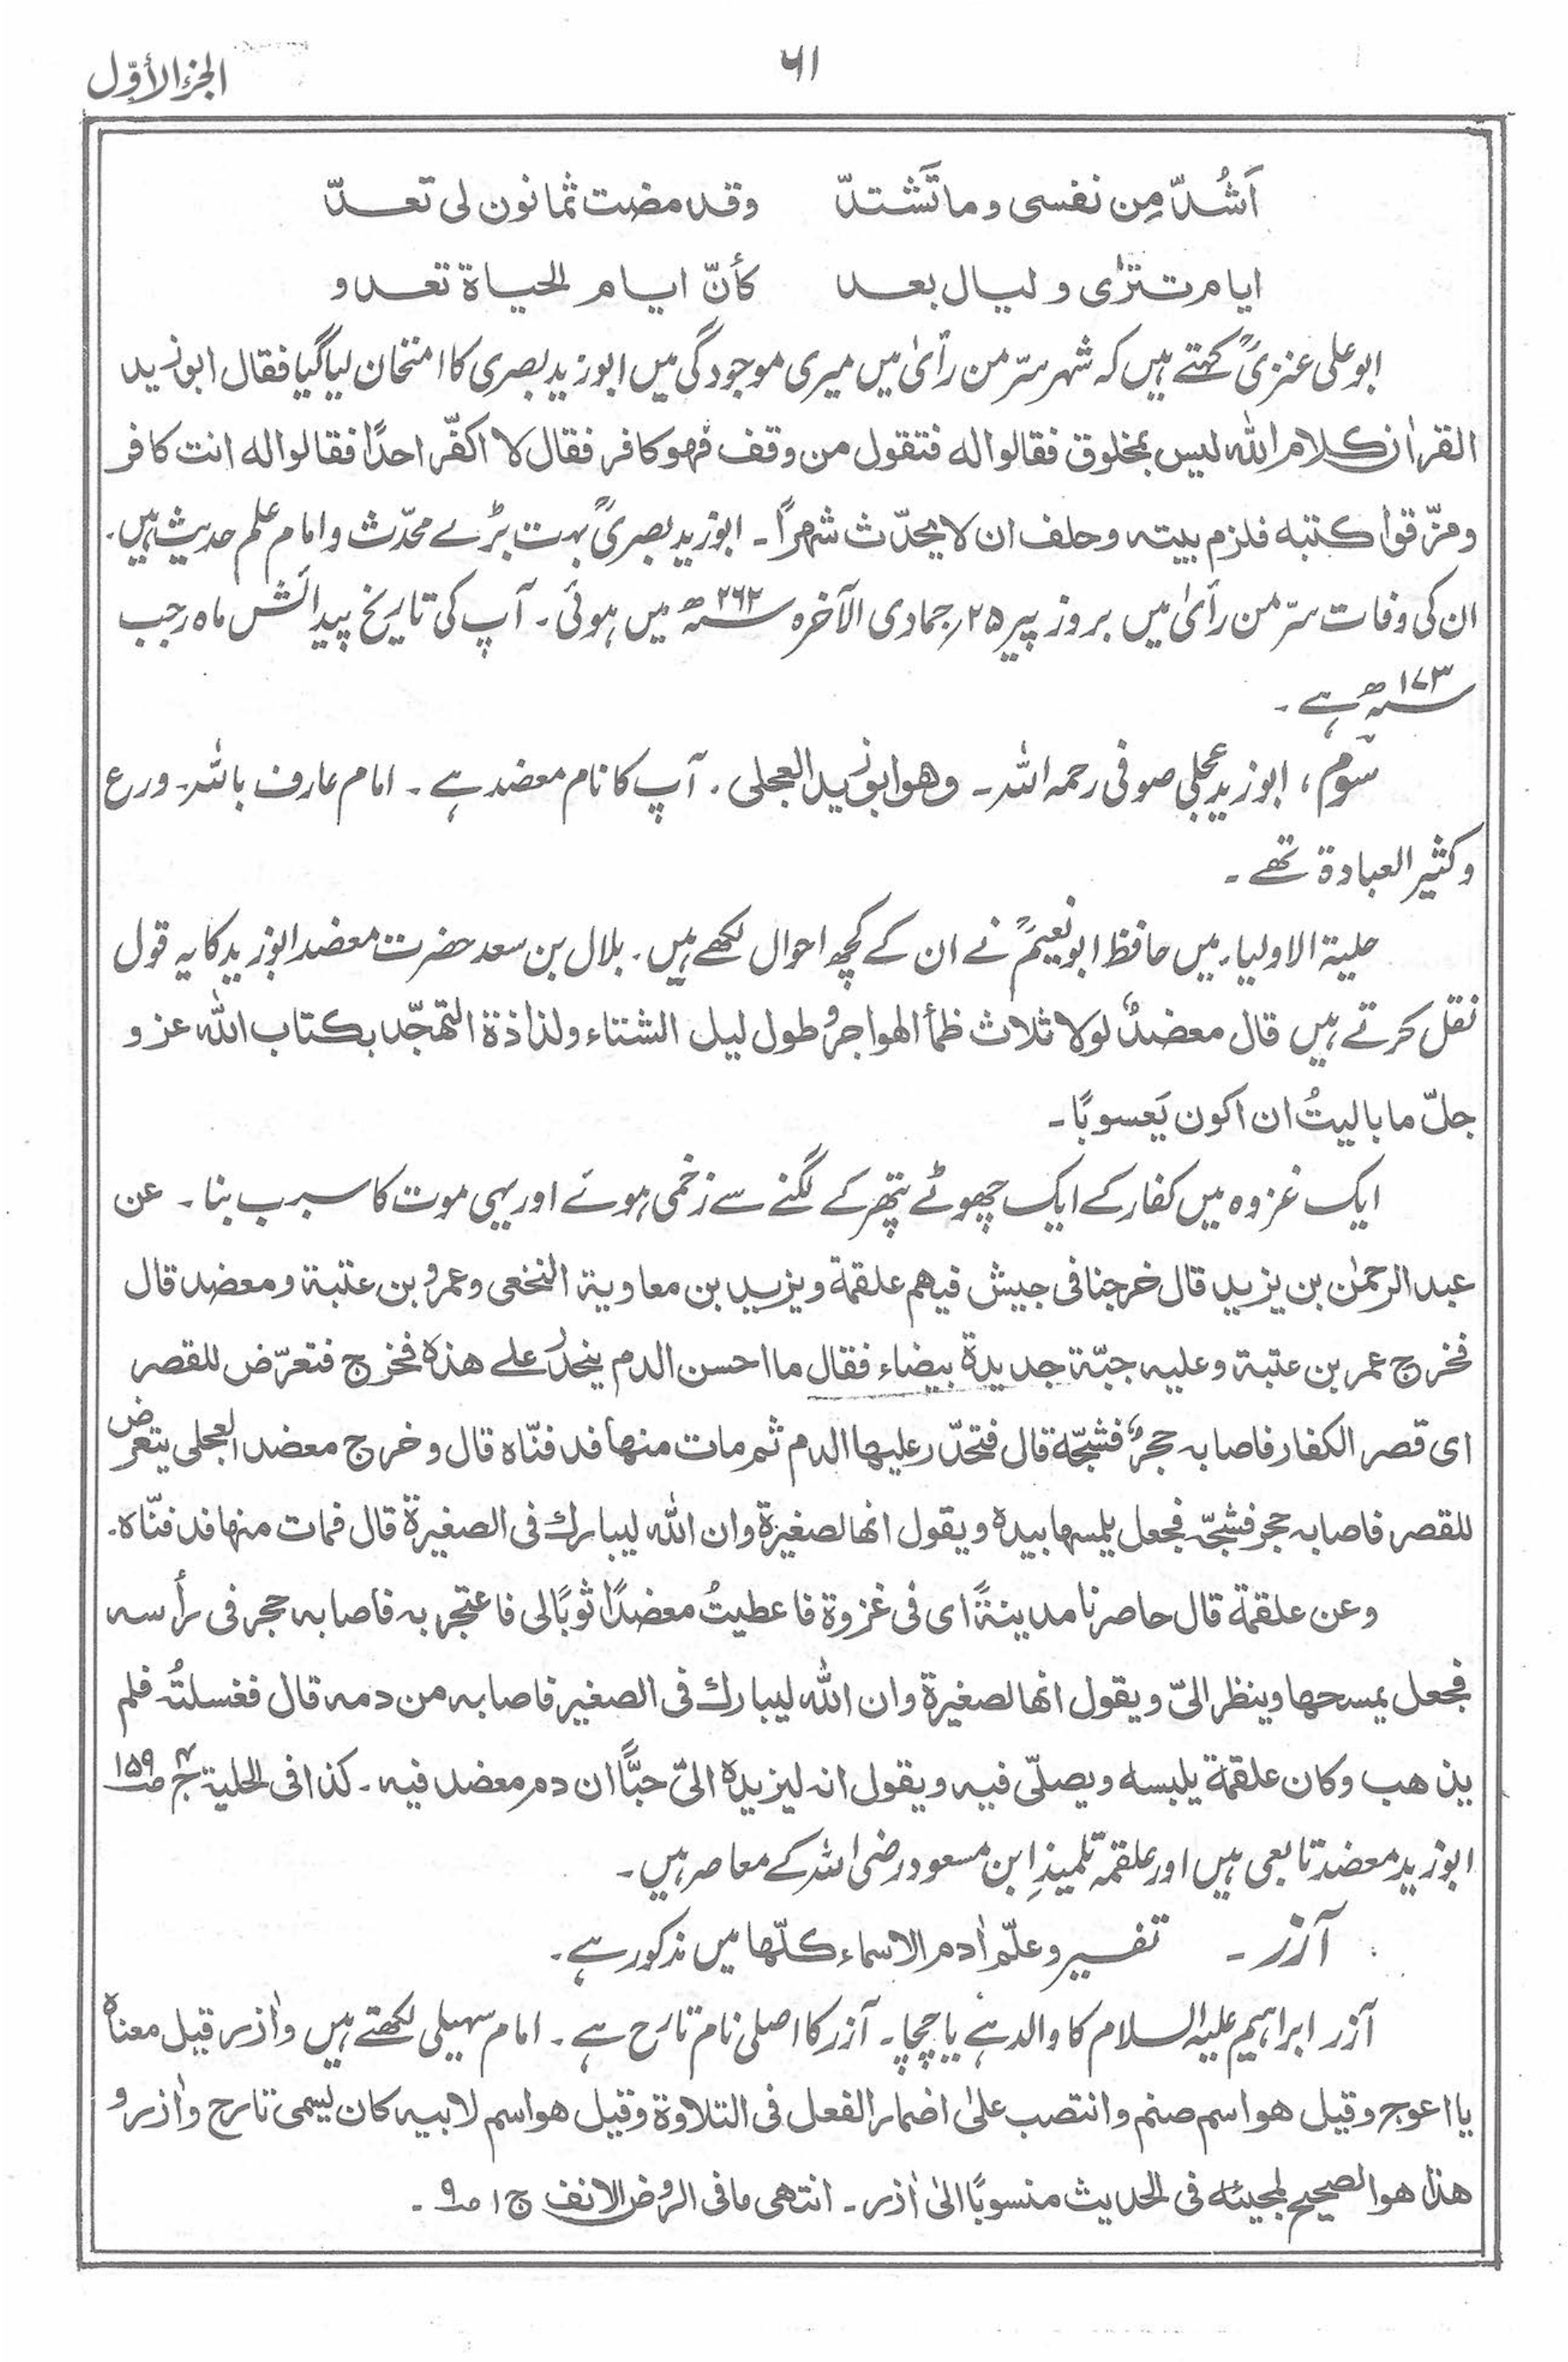 الجزء الأوّل
۶۱
اَشُدّ مِن نفسی و ما تَشتدّ وقد مضت ثمانون لی تعدّ
ایام تترٰی و لیال بعد کأنّ ایام الحیاۃ تعدو
ابو علی عنزیؒ کہتے ہیں کہ شہر سرّ من رأیٰ میں میری موجودگی میں ابو زید بصری کا امتحان لیا گیا فقال ابو زید
القراٰن کلام اللہ لیس بمخلوق فقالوا لہ فتقول من وقف فہو کافر فقال لا اکفّر احدًا فقالوا لہ انت کافر
ومزّقوا کتبہ فلزم بیتہ وحلف ان لا یحدّث شہرًا ۔ ابو زید بصریؒ بہت بڑے محدّث و امام علم حدیث ہیں۔
ان کی وفات سرّ من رأیٰ میں بروز پیر ۲۵؍ جمادی الآخرہ ۲۶۲ سنہ ھ میں ہوئی ۔ آپ کی تاریخ پیدائش ماہ رجب
۱۷۳ سنہ ھ ہے ۔
سوّم ، ابو زید عجلی صوفی رحمہ اللہ ۔ وھو ابو زید العجلی ۔ آپ کا نام معضد ہے ۔ امام عارف باللہ ۔ ورع
و کثیر العبادۃ تھے ۔
حلیۃ الاولیاء میں حافظ ابو نعیمؒ نے ان کے کچھ احوال لکھے ہیں ۔ بلال بن سعد حضرت معضد ابو زید کا یہ قول
نقل کرتے ہیں قال معضدٌ لولا ثلاث ظمأ الھواجر و طول لیل الشتاء ولذاذۃ التھجّد بکتاب اللہ عز و
جلّ ما بالیتُ ان اکون یَعسوبًا ۔
ایک غزوہ میں کفار کے ایک چھوٹے پتھر کے لگنے سے زخمی ہوئے اور یہی موت کا سبب بنا ۔ عن
عبد الرحمٰن بن یزید قال خرجنا فی جیش فیھم علقمۃ ویزید بن معاویۃ النخعی وعمرو بن عتبۃ ومعضد قال
فخرج عمر بن عتبۃ وعلیہ جبّۃ جدیدۃ بیضاء فقال ما احسن الدم ینحدر علے ھذہ فخرج فتعرّض للقصر
ای قصر الکفار فاصابہ حجرٌ فشجّہ قال فتحدّر علیھا الدم ثم مات منھا فدفنّاہ قال وخرج معضد العجلی یتعرّض
للقصر فاصابہ حجر فشجّہ فجعل یلمسھا بیدہ ویقول انھا لصغیرۃ وان اللہ لیبارك فی الصغیرۃ قال فمات منھا فدفنّاہ۔
وعن علقمۃ قال حاصرنا مدینۃً ای فی غزوۃ فاعطیتُ معضدًا ثوبًا لی فاعتجر بہ فاصابہ حجر فی رأسہ
فجعل یمسحھا وینظر الیّ ویقول انھا لصغیرۃ وان اللہ لیبارك فی الصغیر فاصابہ من دمہ قال فغسلتُہ فلم
یذھب وکان علقمۃ یلبسہ ویصلّی فیہ ویقول انہ لیزیدہ الیّ حبًّا ان دم معضد فیہ ۔ کذا فی الحلیۃ ج۴ ص۱۵۹
ابو زید معضد تابعی ہیں اور علقمہ تلمیذِ ابن مسعود رضی اللہ کے معاصر ہیں ۔
آزر ۔ تفسیر و علّم اٰدم الاسماء کلّھا میں مذکور ہے ۔
آزر ابراہیم علیہ السلام کا والد ہے یا چچا ۔ آزر کا اصلی نام تارح ہے ۔ امام سہیلی لکھتے ہیں واٰزر قیل معناہ
یا اعوج وقیل ھو اسم صنم وانتصب علیٰ اضمار الفعل فی التلاوۃ وقیل ھو اسم لابیہ کان یسمی تارح واٰزر و
ھذا ھو الصحیح لمجیئہ فی الحدیث منسوبًا الیٰ اٰزر ۔ انتھی ما فی الروض الانف ج۱ ص۹ ۔